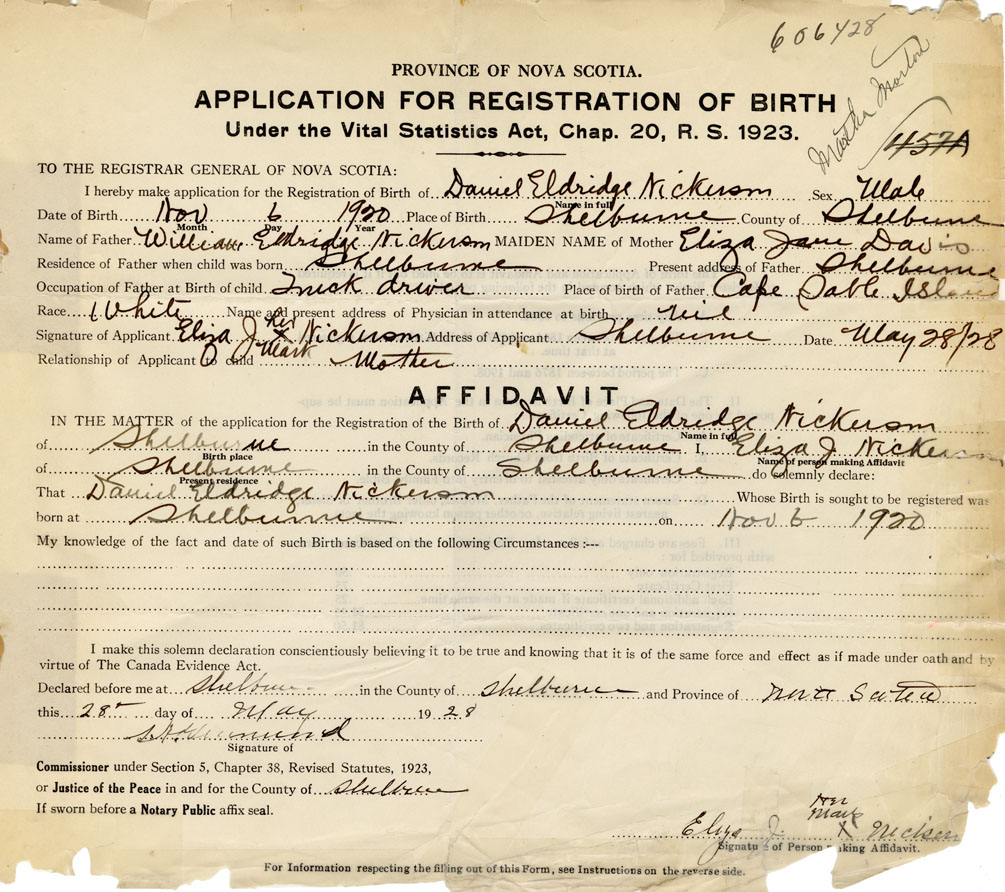 606428
Martha Morton
457A
PROVINCE OF NOVA SCOTIA.
APPLICATION FOR REGISTRATION OF BIRTH
Under the Vital Statistics Act, Chap. 20, R. S. 1923.
TO THE REGISTRAR GENERAL OF NOVA SCOTIA:
I hereby make application for the Registration of Birth of Daniel Eldridge Nickerson Sex Male
Name in full
Date of Birth Nov 6 1920 Place of Birth Shelburne County of Shelburne
Month Day Year
Name of Father William Eldridge Nickerson MAIDEN NAME of Mother Eliza Jane Davis
Residence of Father when child was born Shelburne Present address of Father Shelburne
Occupation of Father at Birth of child Truck driver Place of birth of Father Cape Sable Island
Race White Name and present address of Physician in attendance at birth nil
Signature of Applicant Eliza J. Her X Mark Nickerson Address of Applicant Shelburne Date May 28/28
Relationship of Applicant to child Mother
AFFIDAVIT
IN THE MATTER of the application for the Registration of the Birth of Daniel Eldridge Nickerson
Name in full
of Shelburne in the County of Shelburne I, Eliza J Nickerson
Birth place Name of person making Affidavit
of Shelburne in the County of Shelburne do solemnly declare:
Present residence
That Daniel Eldridge Nickerson Whose Birth is sought to be registered was
born at Shelburne on Nov 6 1920
My knowledge of the fact and date of such Birth is based on the following Circumstances :---
I make this solemn declaration conscientiously believing it to be true and knowing that it is of the same force and effect as if made under oath and by
virtue of The Canada Evidence Act.
Declared before me at Shelburne in the County of Shelburne and Province of Nova Scotia
this 28th day of May 1928
Signature of
Commissioner under Section 5, Chapter 38, Revised Statutes, 1923,
or Justice of the Peace in and for the County of Shelburne
If sworn before a Notary Public affix seal.
Her
Mark
Eliza J. X
Signature of Person making Affidavit.
For Information respecting the filling out of this Form, see Instructions on the reverse side.